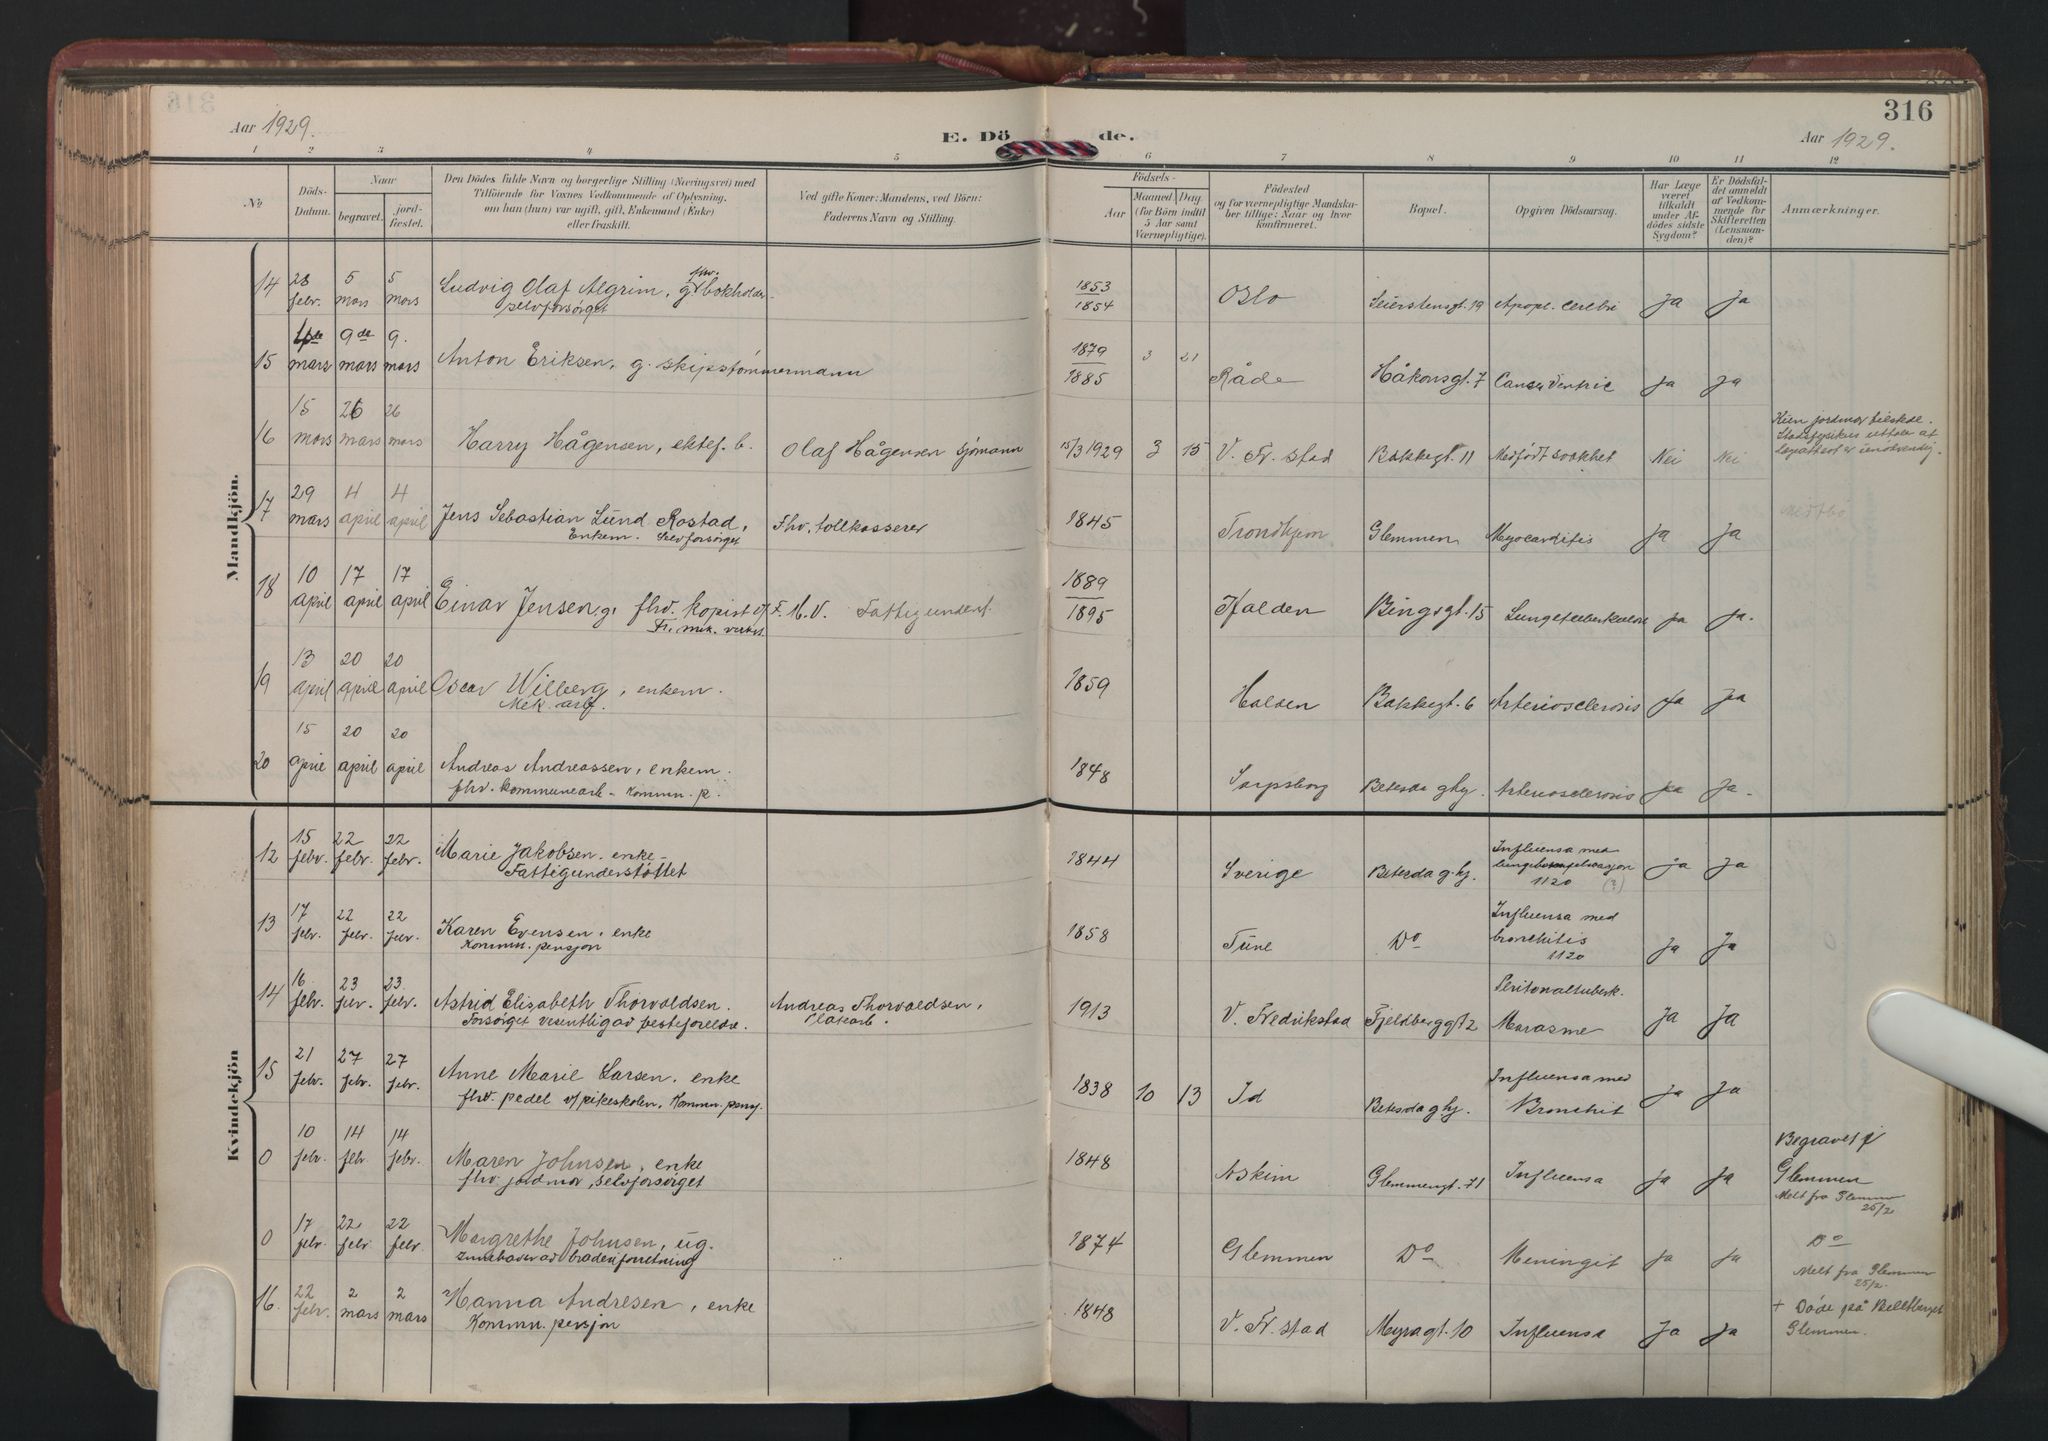 316
Aar 1929.
E. Dö de.
Aar 1929.
1 2 3 4 5 6 7 8 9 10 11 12
No
Döds-Datum.
Naar
begravet.
jord-fæstet.
Den Dödes fulde Navn og borgerlige Stilling (Næringsvei) med
Tilföiende for Voxnes Vedkommende af Oplysning,
om han (hun) var ugift, gift, Enkemand (Enke)
eller fraskilt.
Ved gifte Koner: Mandens, ved Börn:
Faderens Navn og Stilling.
Födsels-
Aar
Maaned Dag
(for Börn indtil
5 Aar samt
Værnepligtige).
Födested
og for værnepligtige Mandska-
ber tillige: Naar og hvor
konfirmeret.
Bopæl.
Opgiven Dödsaarsag.
Har Læge
været
tilkaldt
under Af-
dödes sidste
Sygdom?
Er Dödsfal-
det anmeldt
af Vedkom-
mende for
Skifteretten
(Lensman-
den)?
Anmærkninger.
Mandkjön.
14 28 febr. 5 mars 5 mars Ludvig Olaf Algrim, g. fhv. bokholder 1853 Oslo Seierstensgt. 19 Apopl. cerebri Ja Ja
selvforsørget 1854
15 4de mars 9de mars 9. mars Anton Eriksen, g. skipstømmermann 1879 3 21 Råde Håkonsgt. 7 Cancer ventric Ja Ja
1885
16 15 mars 26 mars 26 mars Harry Hågensen, ektef. b. Olaf Hågensen sjømann 15/3 1929 3 15 V. Fr. stad Bakkegt. 11 Medfødt svakhet Nei Nei Kun jordmor tilstede.
Stadsfysikus uttale at
legeattest er unødvendig.
17 29 mars 4 april 4 april Jens Sebastian Lund Rostad, Fhv. tollkasserer 1845 Trondhjem Glemmen Myocarditis Ja Ja
Enkem. Selvforsørget
18 10 april 17 april 17 april Einar Jensen, g. fhv. kopist v/ F. M. V. Fattigunderst. 1889 Halden Bingsgt. 15 Lungetuberkulose Ja Ja.
Fr. mek. verkst. 1895
19 13 april 20 april 20 april Oscar Wilberg, enkem. 1859 Halden Bakkegt. 6 Arteriosclerosis Ja Ja
Mek. arb.
20 15 april 20 april 20 april Andreas Andreassen, enkem. 1848 Sarpsborg Betesda ghj. Arteriosclerosis Ja Ja.
fhv. kommunearb - Kommu. p.
Kvindekjön
12 15 febr. 22 febr. 22 febr. Marie Jakobsen, enke 1844 Sverige Betesda g.hj. Influensa med
Fattigunderstøttet 1120 (?) Ja Ja
13 17 febr. 22 febr. 22 febr. Karen Evensen, enke 1858 Tune Do Influensa med
Kommu. pensjon bronchitis 1120 Ja Ja
14 16 febr. 23 febr. 23 febr. Astrid Elisabeth Thorvaldsen. Andreas Thorvaldsen, 1913 V. Fredrikstad Fjeldberggt 2 Peritonaltuberk.
Forsørget vesentlig av besteforeldre. Platearb. Marasme Ja Ja
15 21 febr. 27 febr. 27 febr. Anne Marie Larsen, enke 1838 10 13 Id Betesda ghj. Influensa med
fhv. pedel v/ pikeskolen, Kommu. pensj. Bronchit Ja Ja
0 10 febr. 14 febr. 14 febr. Maren Johnsen, enke 1848 Askim Glemmengt. 71 Influensa Ja Ja Begravet i
fhv. jordmor, selvforsørget Glemmen
Melt fra Glemmen
25/2
0 17 febr. 22 febr. 22 febr. Margrethe Johnsen, ug. 1874 Glemmen Do Meningit Ja Ja Do
Innehaver av broderiforretning Melt fra Glemmen
25/2.
16. 22 febr. 2 mars 2 mars Hanna Andresen, enke 1848 V. Fr. stad Myragt. 10 Influensa Ja Ja + Døde på
Kommu. pensjon Glemmen.